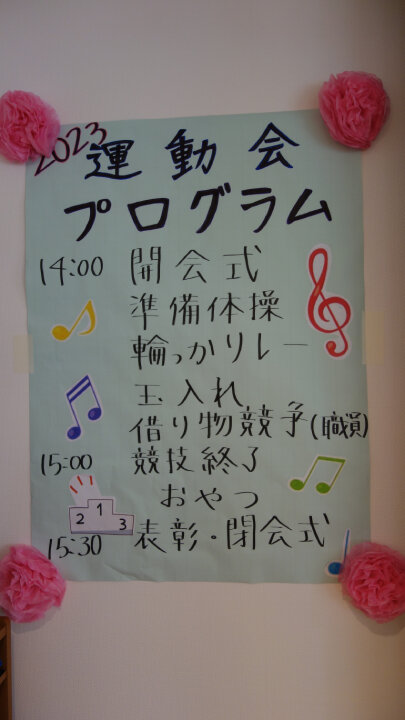 2023
運動会
プログラム
14:00 開会式
準備体操
輪っかリレー
玉入れ
借り物競争(職員)
15:00 競技終了
おやつ
1
2 3
15:30 表彰・閉会式